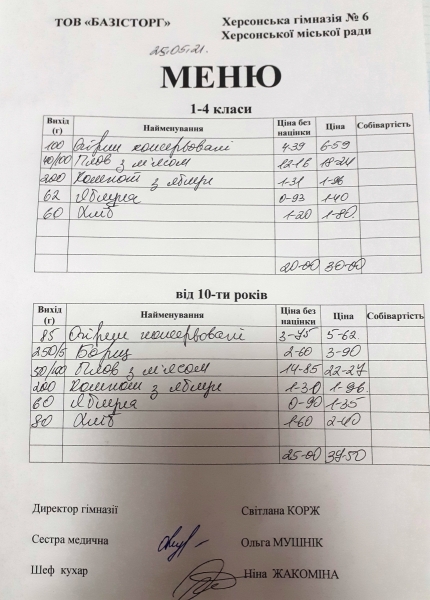 ТОВ «БАЗІСТОРГ» Херсонська гімназія № 6
Херсонської міської ради
25.05.21.
МЕНЮ
1-4 класи
Вихід (г) Найменування Ціна без націнки Ціна Собівартість
100 Огірки консервовані 4-39 6-59
40/100 Плов з м'ясом 12-16 18-24
200 Компот з яблук 1-31 1-96
62 Яблука 0-93 1-40
60 Хліб 1-20 1-80
20-00 30-00
від 10-ти років
Вихід (г) Найменування Ціна без націнки Ціна Собівартість
85 Огірки консервовані 3-75 5-62
250/5 Борщ 2-60 3-90
50/100 Плов з м'ясом 14-85 22-27
200 Компот з яблук 1-30 1-96
60 Яблука 0-90 1-35
80 Хліб 1-60 2-40
25-00 37-50
Директор гімназії Світлана КОРЖ
Сестра медична Ольга МУШНІК
Шеф кухар Ніна ЖАКОМІНА